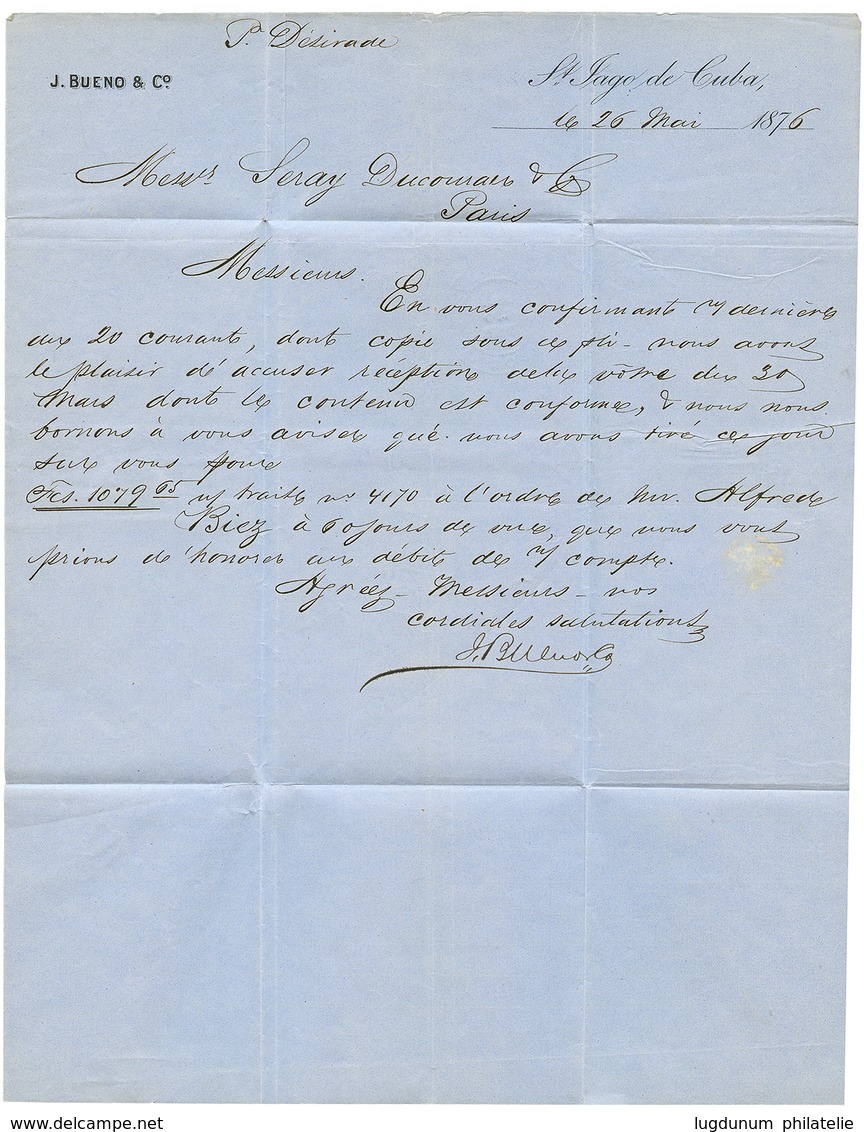 Pr. Désirade
J. BUENO & Co
St. Jago de Cuba,
le 26 Mai 1876
Messrs Seray Ducourau & Co
Paris
Messieurs.
En vous confirmant n/ dernières
du 20 courant, dont copie sous ce pli - nous avons
le plaisir d'accuser réception de la vôtre du 30
Mars dont le contenu est conforme, & nous nous
bornons à vous aviser que nous avons tiré ce jour
sur vous pour
Fcs. 1079 65 n/ traite no 4170 à l'ordre de Mr. Alfred
Biez à 60 jours de vue, que nous vous
prions de honorer au débit de n/ compte.
Agréez - Messieurs - nos
cordiales salutations
J. Bueno & Co
delcampe.net
lugdunum philatelie